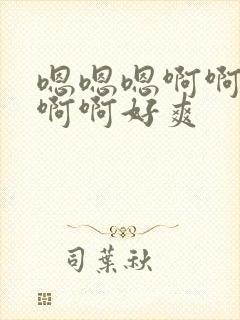 嗯嗯嗯啊啊
啊啊好爽
司葉秋